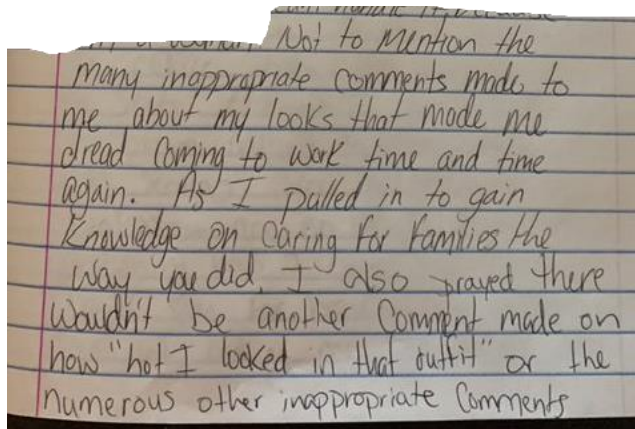 handle it because
a woman. Not to mention the
many inappropriate comments made to
me about my looks that made me
dread coming to work time and time
again. As I pulled in to gain
Knowledge on caring for families the
way you did, I also prayed there
wouldn't be another comment made on
how "hot I looked in that outfit" or the
numerous other inappropriate comments